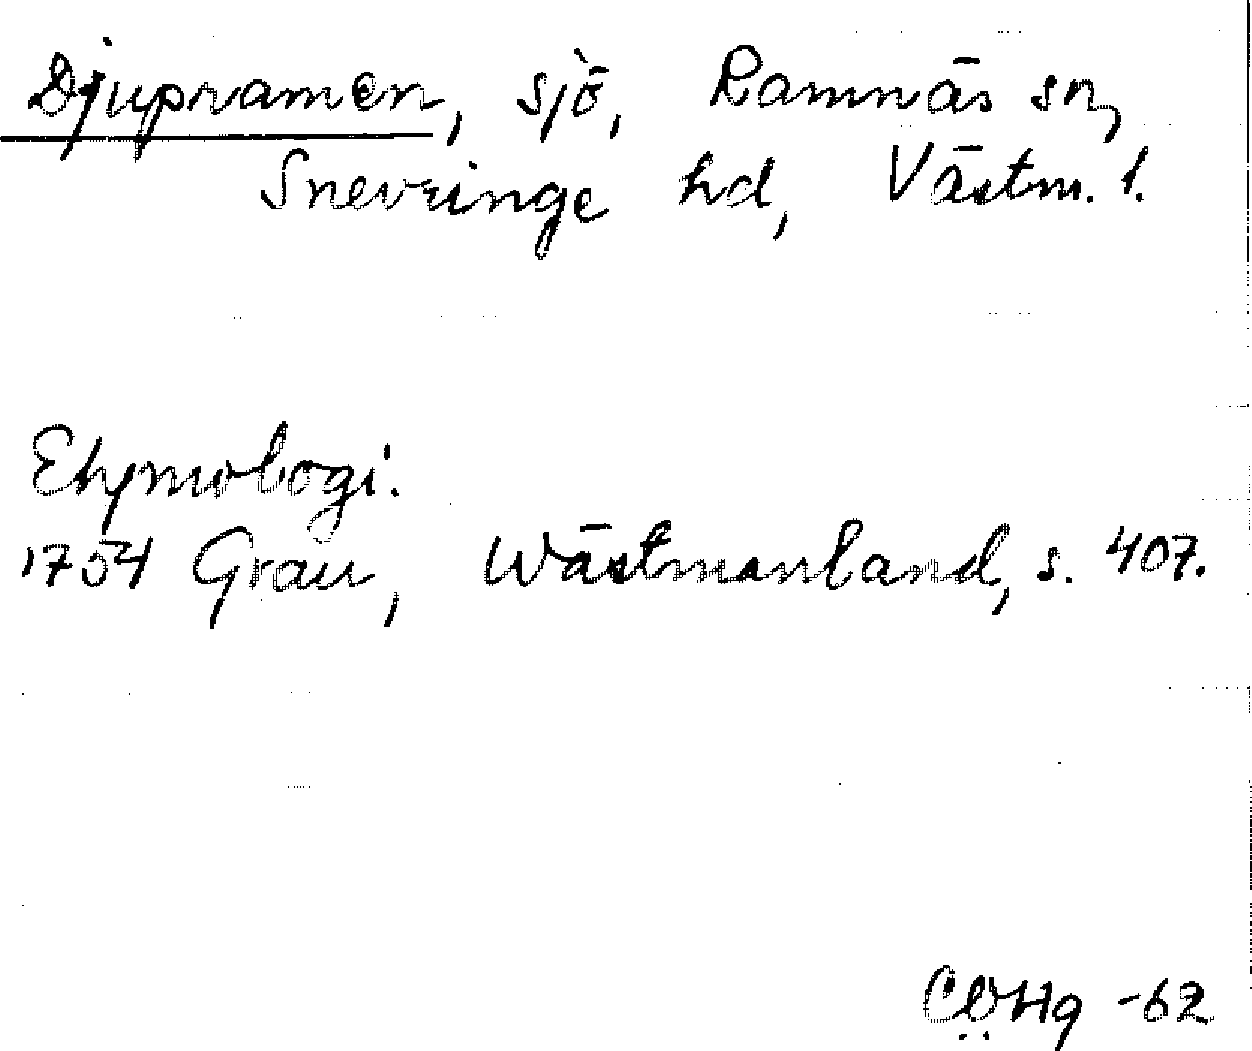 Djupramen, sjö, Ramnäs sn,
Snevringe hd, Västm. l.
Etymologi.
1754 Grau, Wästmanland, s. 407.
CDHg -62